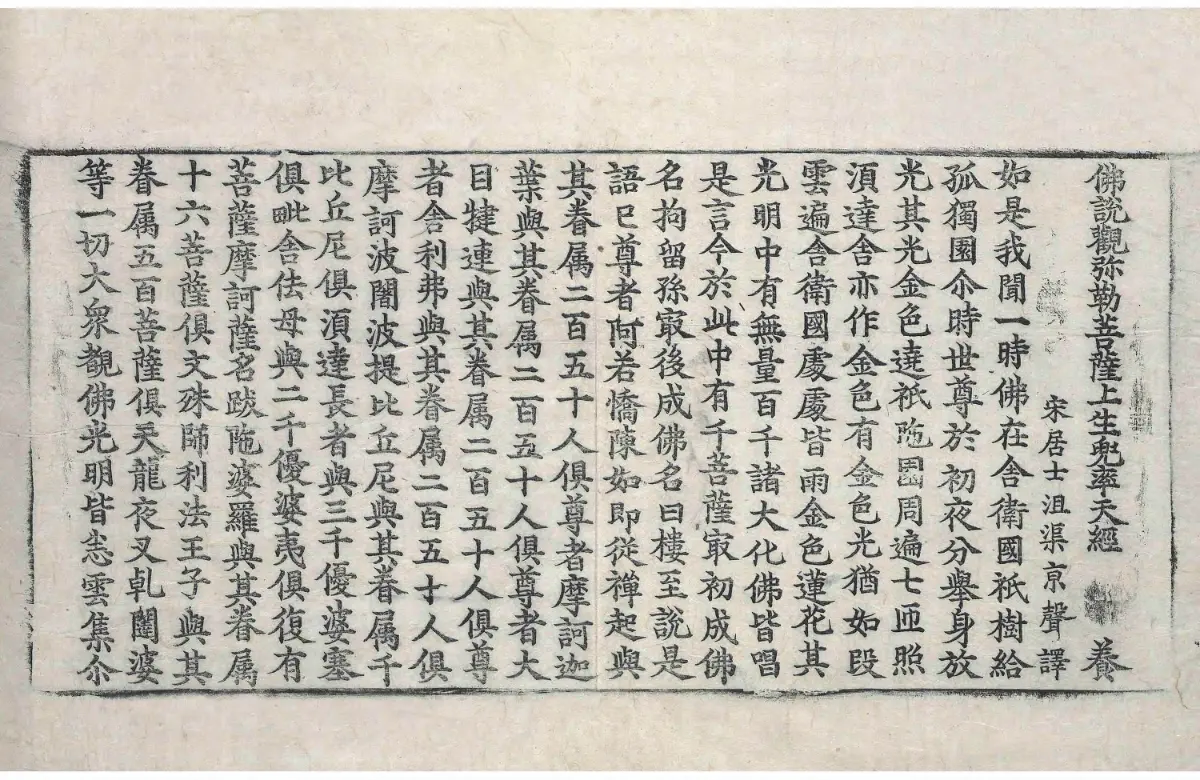 佛說觀弥勒菩薩上生兜率天經 養
宋居士沮渠京聲 譯
如是我聞一時佛在舍衛國祇樹給
孤獨園尒時世尊於初夜分舉身放
光其光金色遶祇陁園周遍七匝照
湏達舍亦作金色有金色光猶如段
雲遍舍衛國處處皆雨金色蓮花其
光明中有無量百千諸大化佛皆唱
是言今於此中有千菩薩㝡初成佛
名拘留孫㝡後成佛名曰樓至說是
語已尊者阿若憍陳如即從禪起與
其眷属二百五十人俱尊者摩訶迦
葉與其眷属二百五十人俱尊者大
目揵連與其眷属二百五十人俱尊
者舍利弗與其眷属二百五十人俱
摩訶波闍波提比丘尼與其眷属千
比丘尼俱湏達長者與三千優婆塞
俱毗舍佉母與二千優婆夷俱復有
菩薩摩訶薩名跋陁婆羅與其眷属
十六菩薩俱文殊師利法王子與其
眷属五百菩薩俱天龍夜叉乹闥婆
等一切大眾覩佛光明皆悉雲集尒